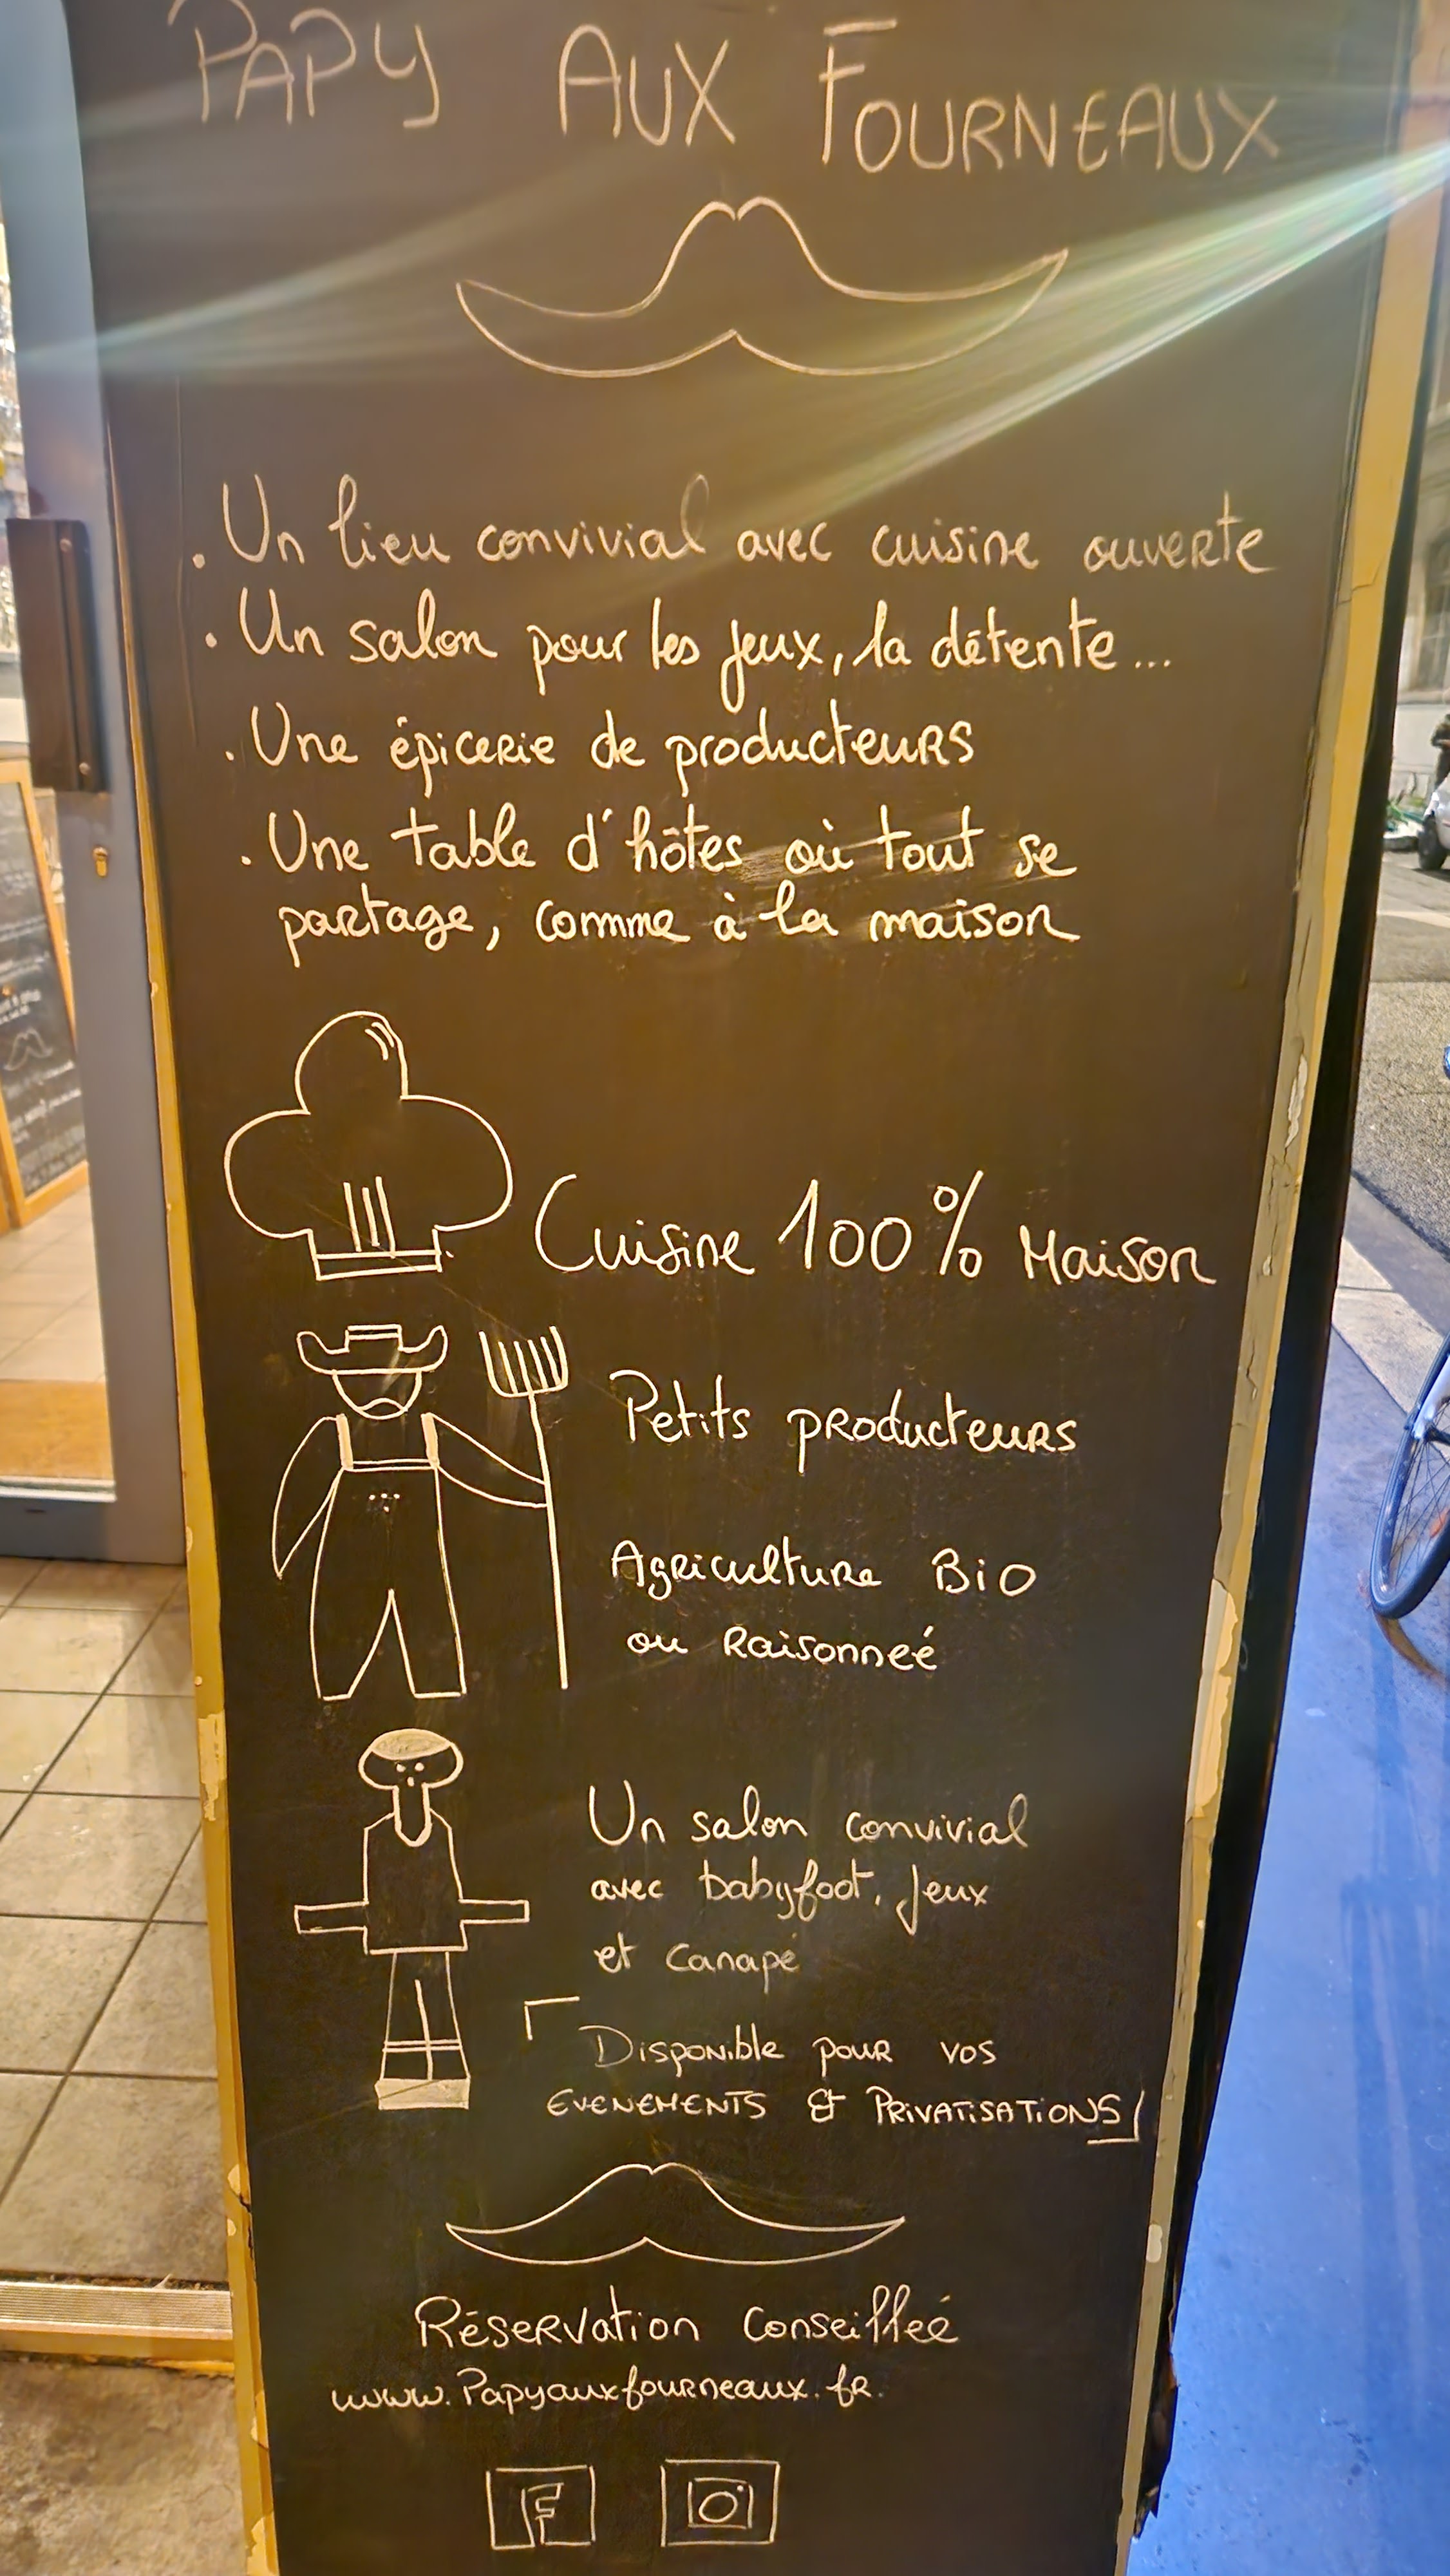 PAPY AUX FOURNEAUX
. Un lieu convivial avec cuisine ouverte
. Un salon pour les jeux, la détente...
. Une épicerie de producteurs
. Une table d'hôtes où tout se
partage, comme à la maison
Cuisine 100% Maison
Petits producteurs
Agriculture Bio
ou Raisonneé
Un salon convivial
avec babyfoot, Jeux
et Canapé
Disponible pour vos
EVENEMENTS & PRIVATISATIONS
Réservation Conseilleé
www.Papyauxfourneaux.fr.
F